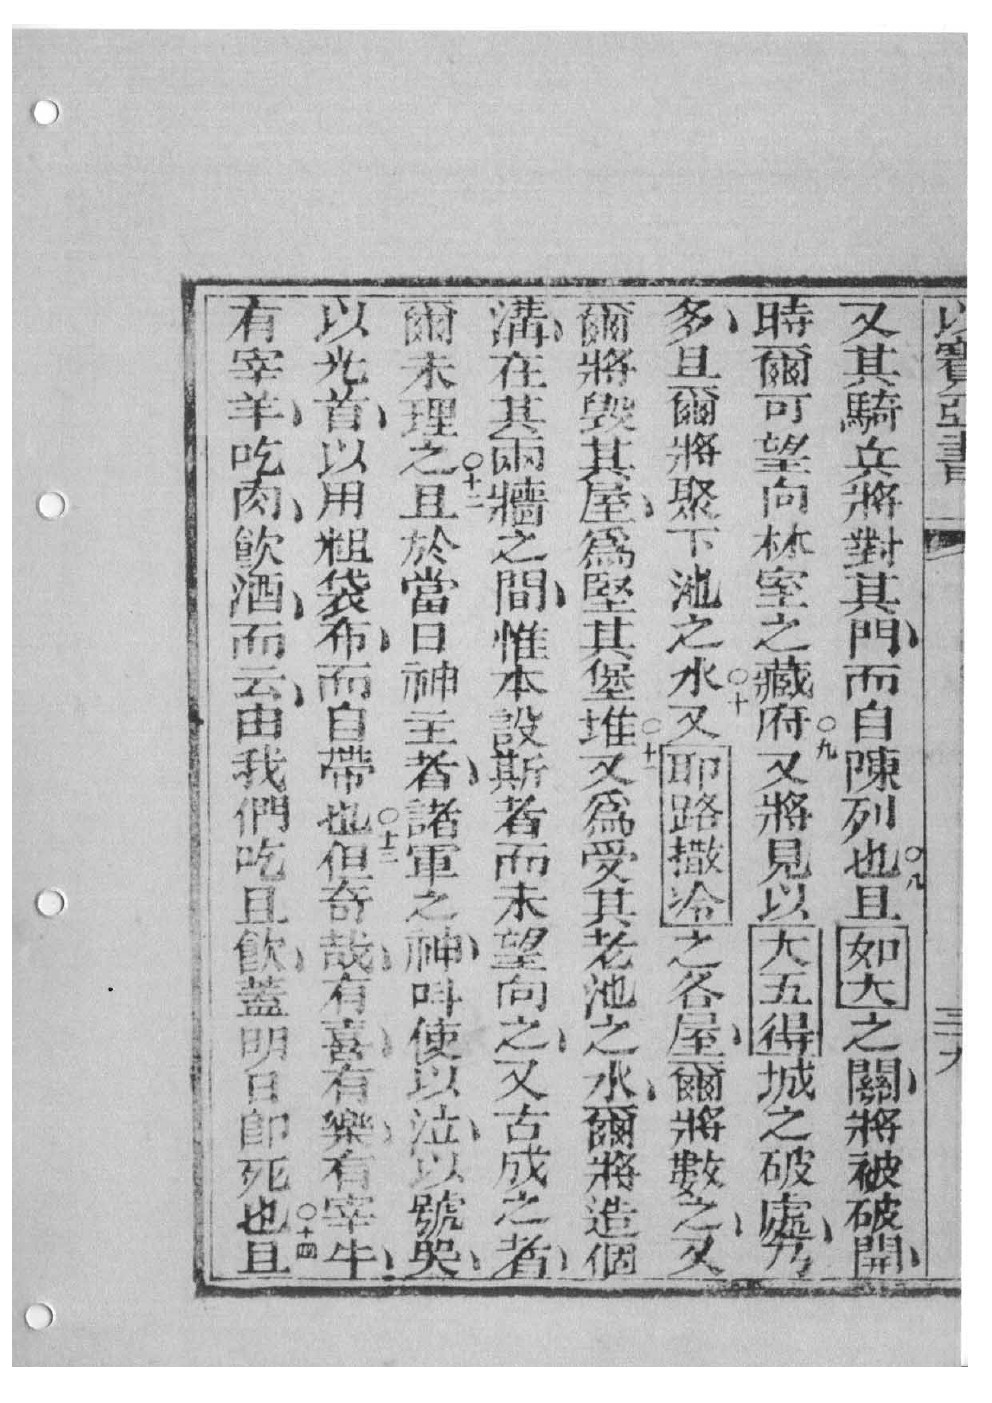 以賽亞書
三十九
又其騎兵將對其門、而自陳列也○八且如大之關、將被破開、
時爾可望向林室之藏府○九又將見以大五得城之破處、乃
多、且爾將聚下池之水○十又耶路撒冷之各屋、爾將數之、又
爾將毀其屋、爲堅其堡堆○十一又爲受其老池之水、爾將造個
溝、在其兩牆之間、惟本設斯者而未望向之、又古成之者、
爾未理之○十二且於當日神主者、諸軍之神、叫使以泣、以號哭、
以光首、以用粗袋布、而自帶也○十三但奇哉、有喜、有樂、有宰牛、
有宰羊、吃肉、飮酒、而云、由我們吃且飮、蓋明日卽死也○十四且